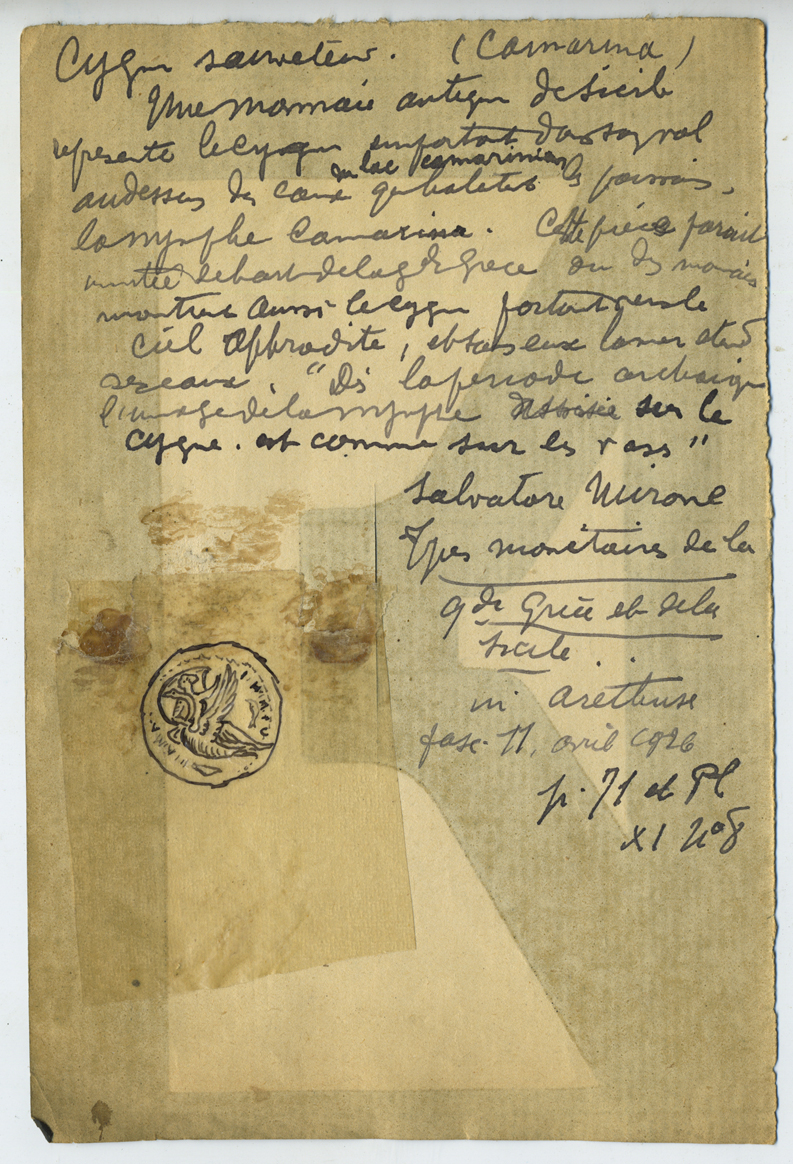 Cygne sauveteur. (Camarina)
Une monnaie antique de Sicile
représente le cygne emportant dans son vol
du lac camarinien
au dessus des eaux les poissons,
la nymphe Camarina. Cette pièce parait
de la gde Grèce ou des
montrent aussi le cygne portant vers le
ciel Aphrodite, et sous eux la mer
"Dès la période archaïque
l'image de la nymphe assise sur le
cygne. est comme sur les vases"
Salvatore Mirone
Types monétaires de la
gde Grèce et de la
Sicile
in Arethuse
fasc. 11, avril 1926
p. 71 et Pl
XI No 8